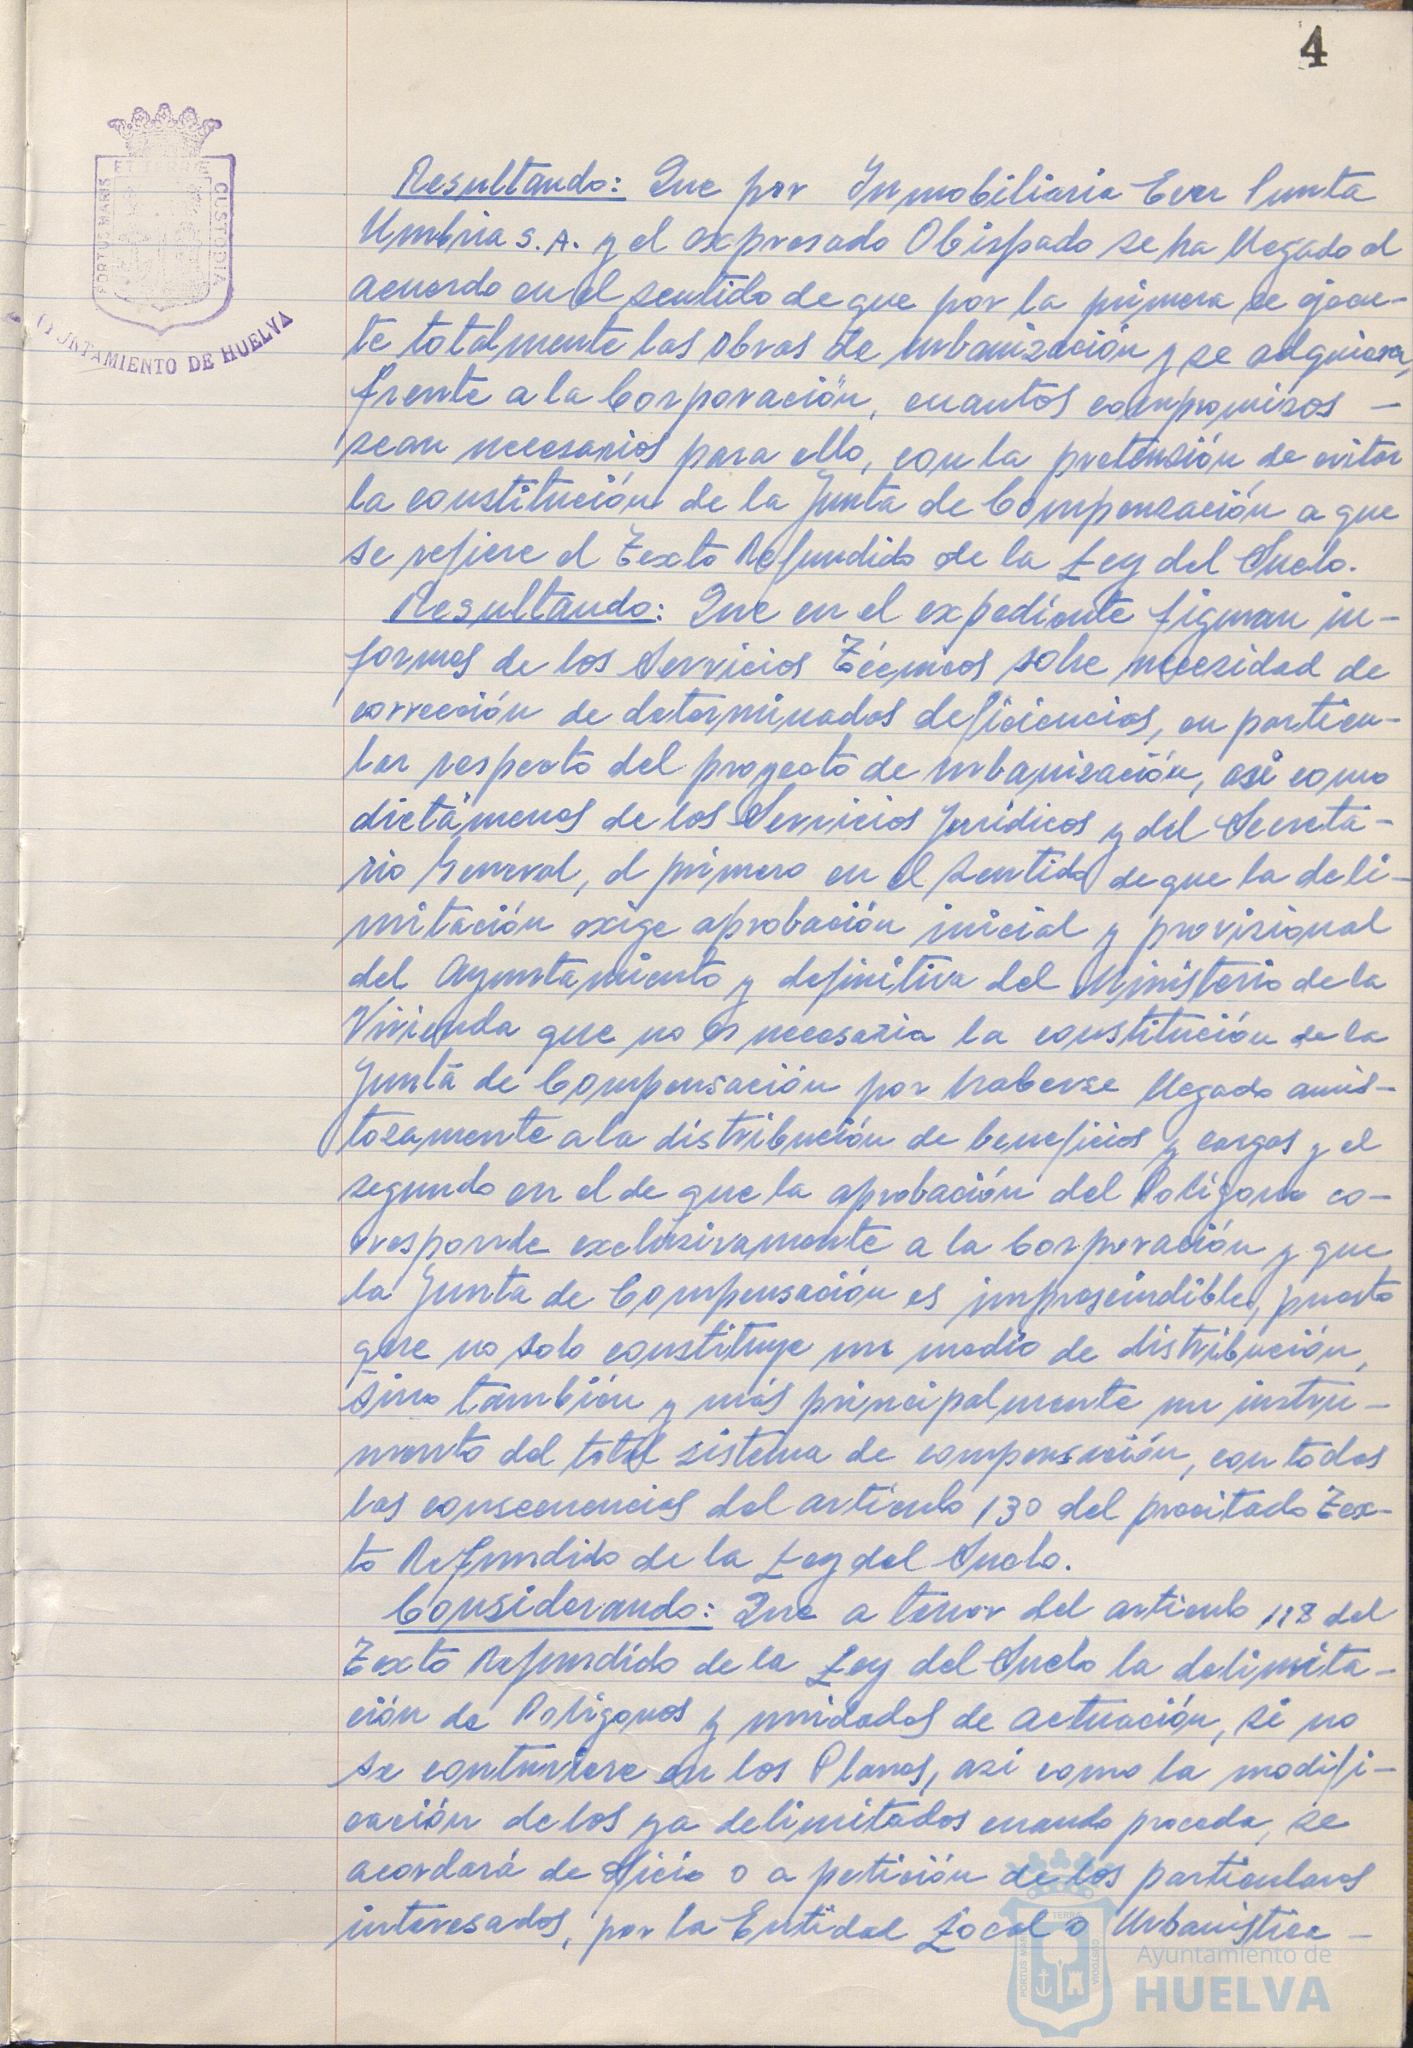 4
PORTUS MARIS
CUSTODIA
AYUNTAMIENTO DE HUELVA
Resultando: Que por Inmobiliaria Ever Punta
Umbria S.A. y el expresado Obispado se ha llegado al
acuerdo en el sentido de que por la primera se ejecu-
te totalmente las obras de urbanización y se adquieran,
frente a la Corporación, cuantos compromisos -
sean necesarios para ello, con la pretensión de evitar
la constitución de la Junta de Compensación a que
se refiere el Texto Refundido de la Ley del Suelo.
Resultando: Que en el expediente figuran in-
formes de los Servicios Técnicos sobre necesidad de
corrección de determinados deficiencias, en particu-
lar respecto del proyecto de urbanización, asi como
dictámenes de los Servicios Jurídicos y del Secreta-
rio General, el primero en el sentido de que la deli-
mitación exige aprobación inicial y provisional
del Ayuntamiento y definitiva del Ministerio de la
Vivienda que no es necesaria la constitución de la
Junta de Compensación por haberse llegado amis-
tosamente a la distribución de beneficios y cargas y el
segundo en el de que la aprobación del Polígono co-
rresponde exclusivamente a la Corporación y que
la Junta de Compensación es imprescindible, puesto
que no solo constituye un medio de distribución,
sino también y más principalmente un instru-
mento del total sistema de compensación, con todas
las consecuencias del artículo 130 del precitado Tex-
to Refundido de la Ley del Suelo.
Considerando: Que a tenor del articulo 118 del
Texto Refundido de la Ley del Suelo la delimita-
ción de Polígonos y unidades de actuación, si no
se contuviere en los Planes, asi como la modifi-
cación de los ya delimitados cuando proceda, se
acordará de oficio o a petición de los particulares
interesados, por la Entidad Local o Urbanistica -
PORTUS MARIS
TERRAE
CUSTODIA
Ayuntamiento de
HUELVA